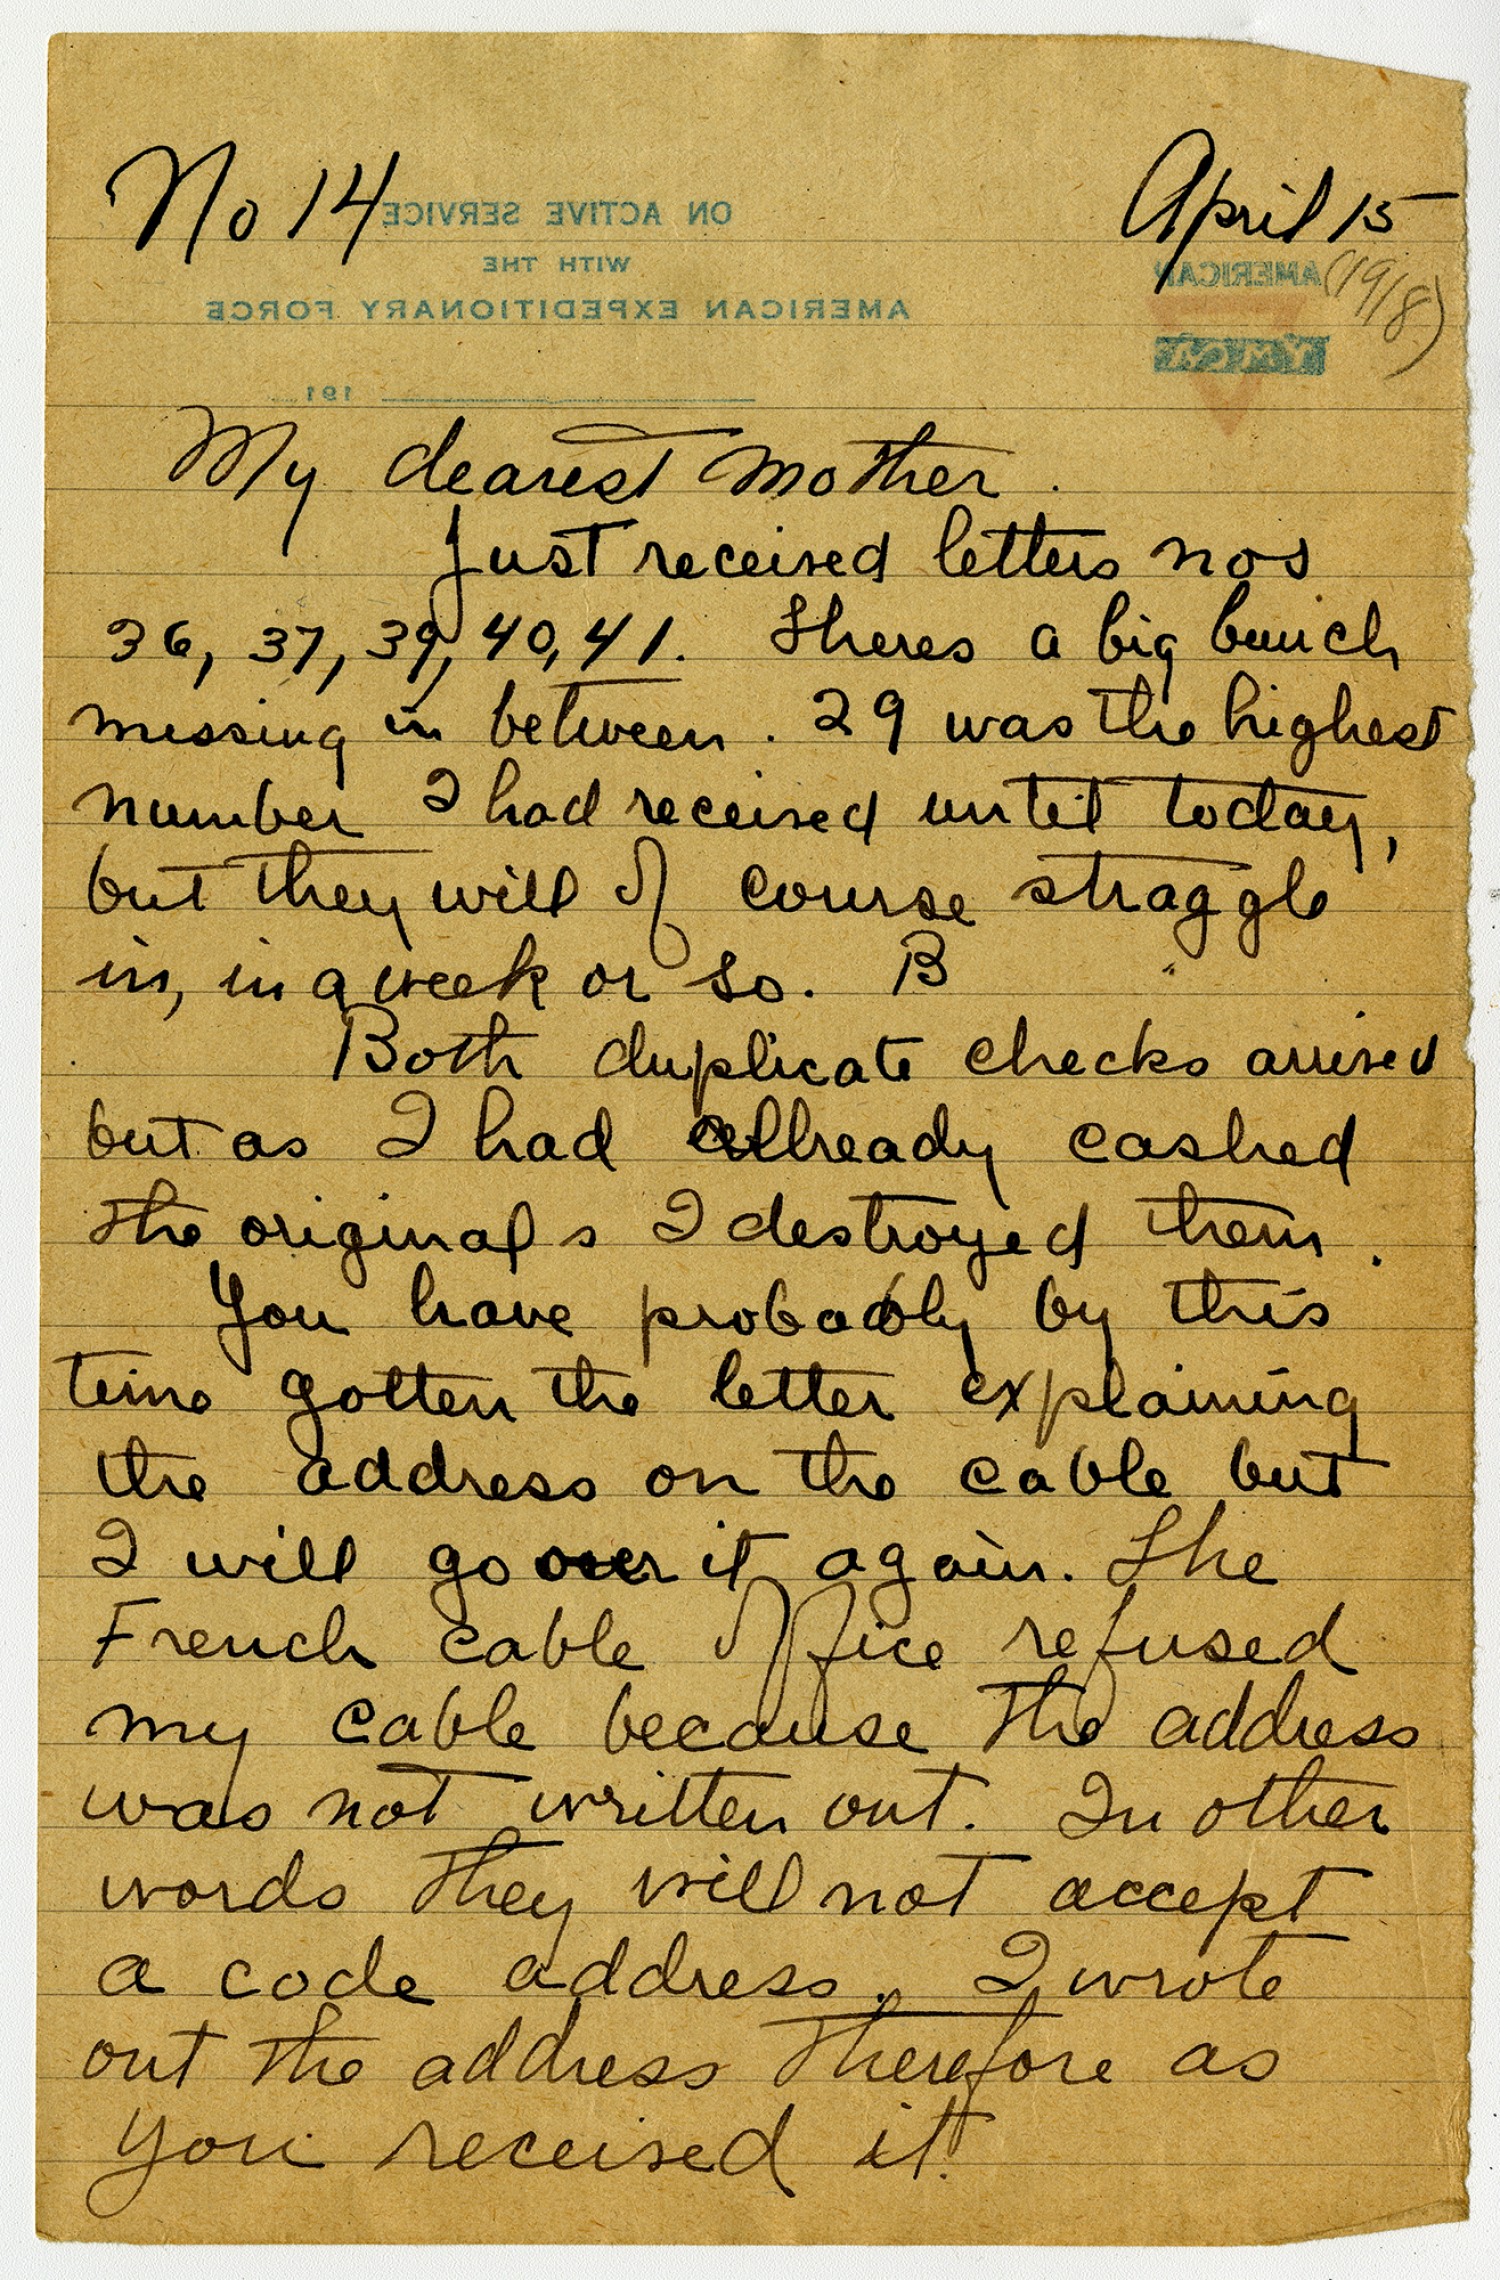 No 14
April 15
(1918)
ON ACTIVE SERVICE
WITH THE
AMERICAN EXPEDITIONARY FORCE
AMERICAN
Y.M.C.A.
191
My dearest Mother.
Just received letters nos
36, 37, 39, 40, 41. Theres a big bunch
missing in between. 29 was the highest
number I had received until today,
but they will of course straggle
in, in a week or so. B
Both duplicate checks arrived
but as I had allready cashed
the originals I destroyed them.
You have probably by this
time gotten the letter explaining
the address on the cable but
I will go over it again. The
French cable office refused
my cable because the address
was not written out. In other
words they will not accept
a code address. I wrote
out the address therefore as
you received it.